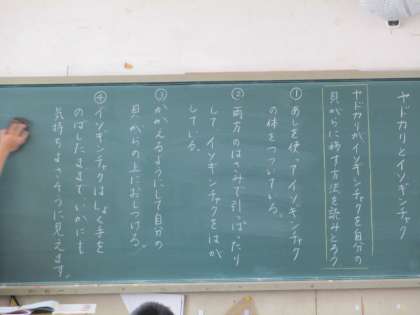 ヤドカリとイソギンチャク
ヤドカリがイソギンチャクを自分の
貝がらに移す方法を読みとろう
①あしを使ってイソギンチャク
の体をつついている。
②両方のはさみで引っぱったり
して、イソギンチャクをはが
している。
③かかえるようにして自分の
貝がらの上におしつける。
④イソギンチャクはしょく手を
のばしたままでいかにも
気持ちよさそうに見えます。